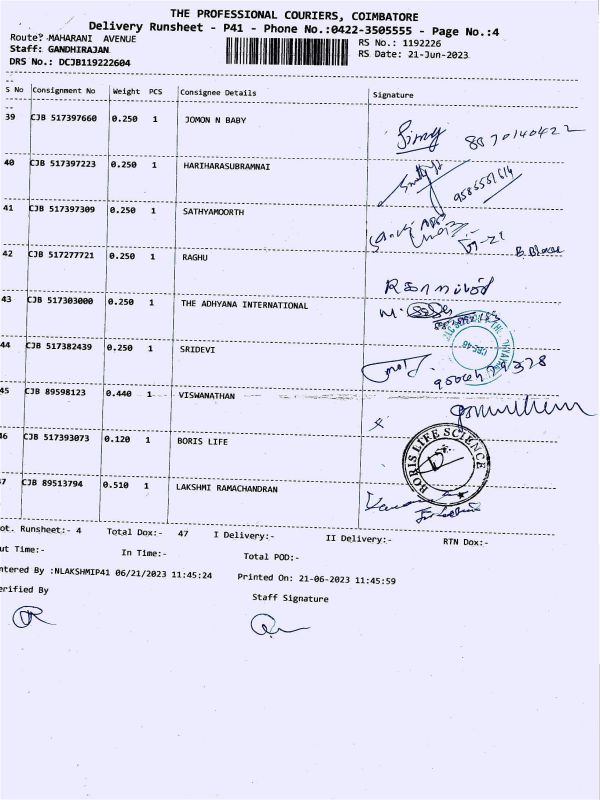 THE PROFESSIONAL COURIERS, COIMBATORE
Delivery Runsheet - P41 - Phone No.:0422-3505555 - Page No.:4
Route? MAHARANI AVENUE
RS No.: 1192226
Staff: GANDHIRAJAN
RS Date: 21-Jun-2023
DRS No.: DCJB119222604
S No Consignment No Weight PCS Consignee Details Signature
39 CJB 517397660 0.250 1 JOMON N BABY
8870140422
40 CJB 517397223 0.250 1 HARIHARASUBRAMNAI
41 CJB 517397309 0.250 1 SATHYAMOORTH
42 CJB 517277721 0.250 1 RAGHU
B. Block
43 CJB 517303000 0.250 1 THE ADHYANA INTERNATIONAL
44 CJB 517382439 0.250 1 SRIDEVI
45 CJB 89598123 0.440 1 VISWANATHAN
46 CJB 517393073 0.120 1 BORIS LIFE
BORIS LIFE SCIENCE
47 CJB 89513794 0.510 1 LAKSHMI RAMACHANDRAN
ot. Runsheet:- 4 Total Dox:- 47 I Delivery:- II Delivery:- RTN Dox:-
ut Time:- In Time:- Total POD:-
ntered By :NLAKSHMIP41 06/21/2023 11:45:24 Printed On: 21-06-2023 11:45:59
erified By
Staff Signature